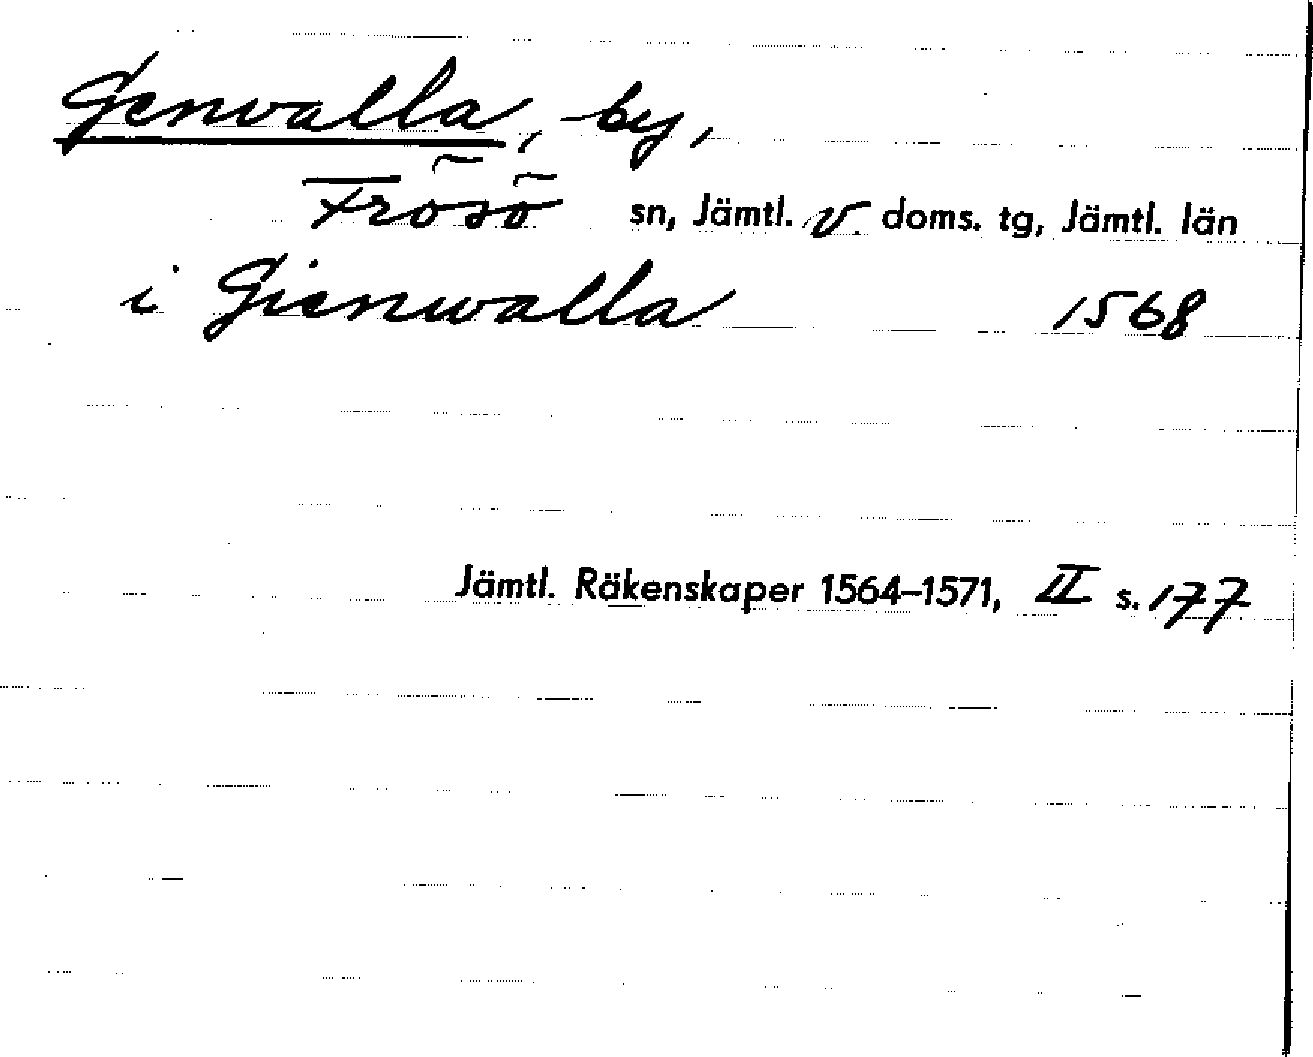 Genvalla, by,
Frösö sn, Jämtl. v. doms. tg, Jämtl. län
i Gienwalla 1568
Jämtl. Räkenskaper 1564–1571, II s. 177